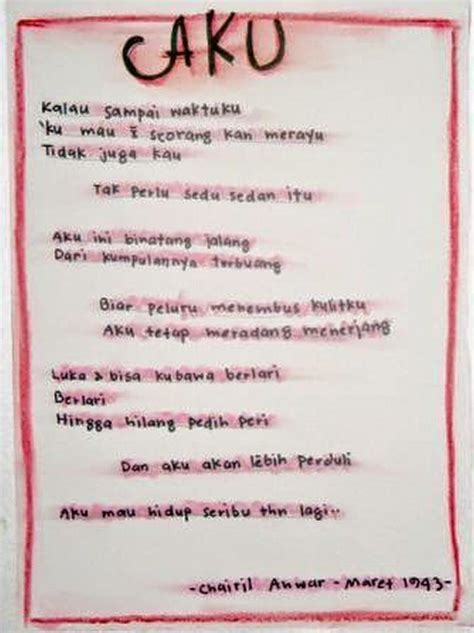 AKU
Kalau sampai waktuku
'ku mau ꞇ seorang kan merayu
Tidak juga kau
Tak perlu sedu sedan itu
Aku ini binatang jalang
Dari kumpulannya terbuang
Biar peluru menembus kulitku
Aku tetap meradang menerjang
Luka & bisa kubawa berlari
Berlari
Hingga hilang pedih peri
Dan aku akan lebih perduli
Aku mau hidup seribu thn lagi..
-Chairil Anwar - Maret 1943-